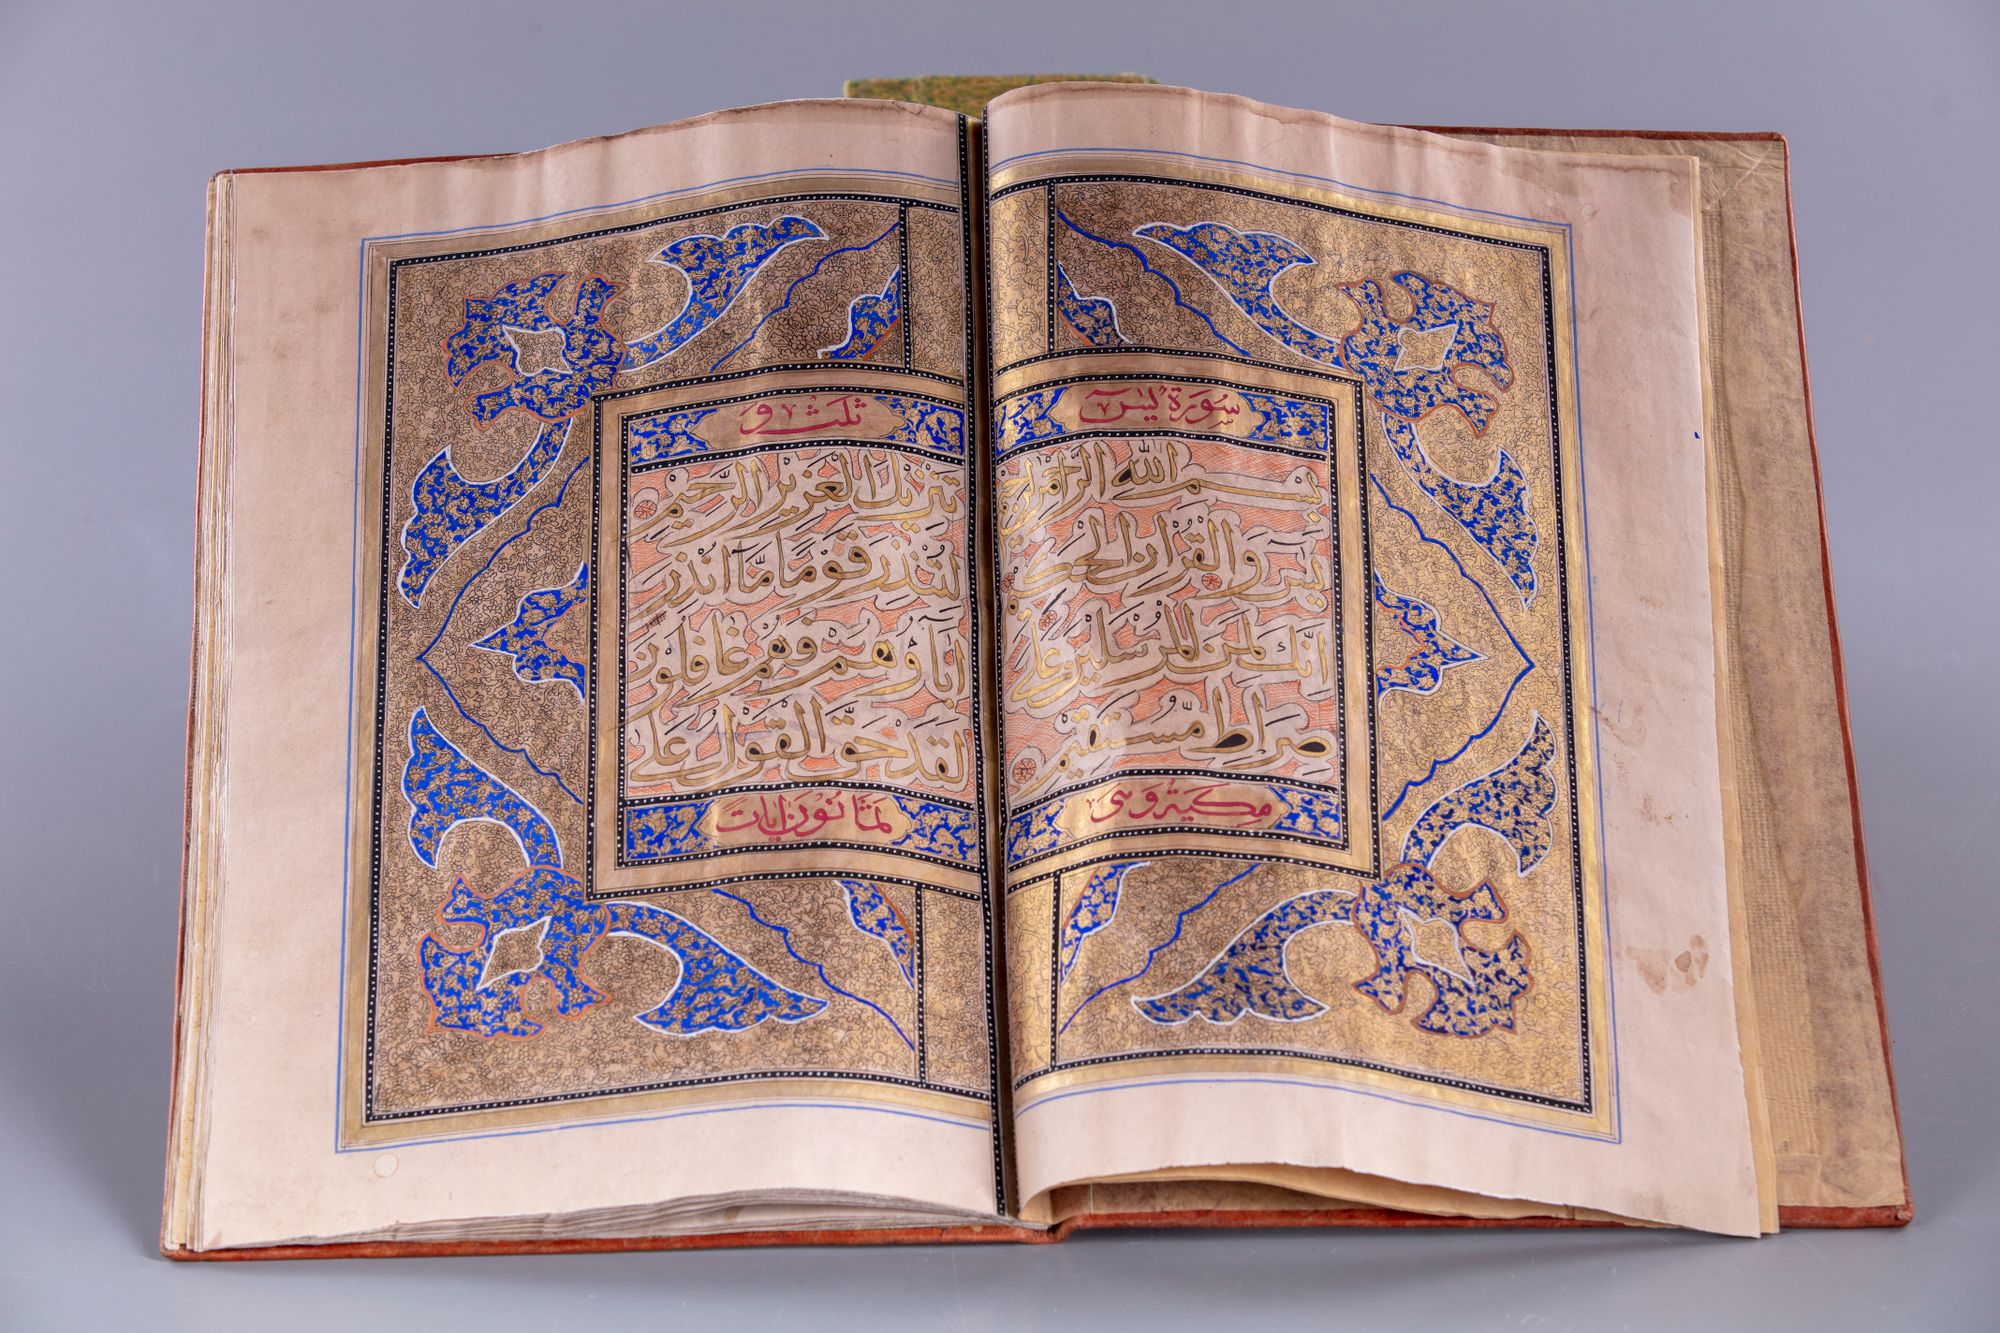 سورة يس
بسم الله الرحمن الرحيم
يس والقرآن الحكيم
انك لمن المرسلين على
صراط مستقيم
مكية وهي
ثلث و
تنزيل العزيز الرحيم
لتنذر قوما ما انذر
اباؤهم فهم غافلون
لقد حق القول على
ثمانون ايات